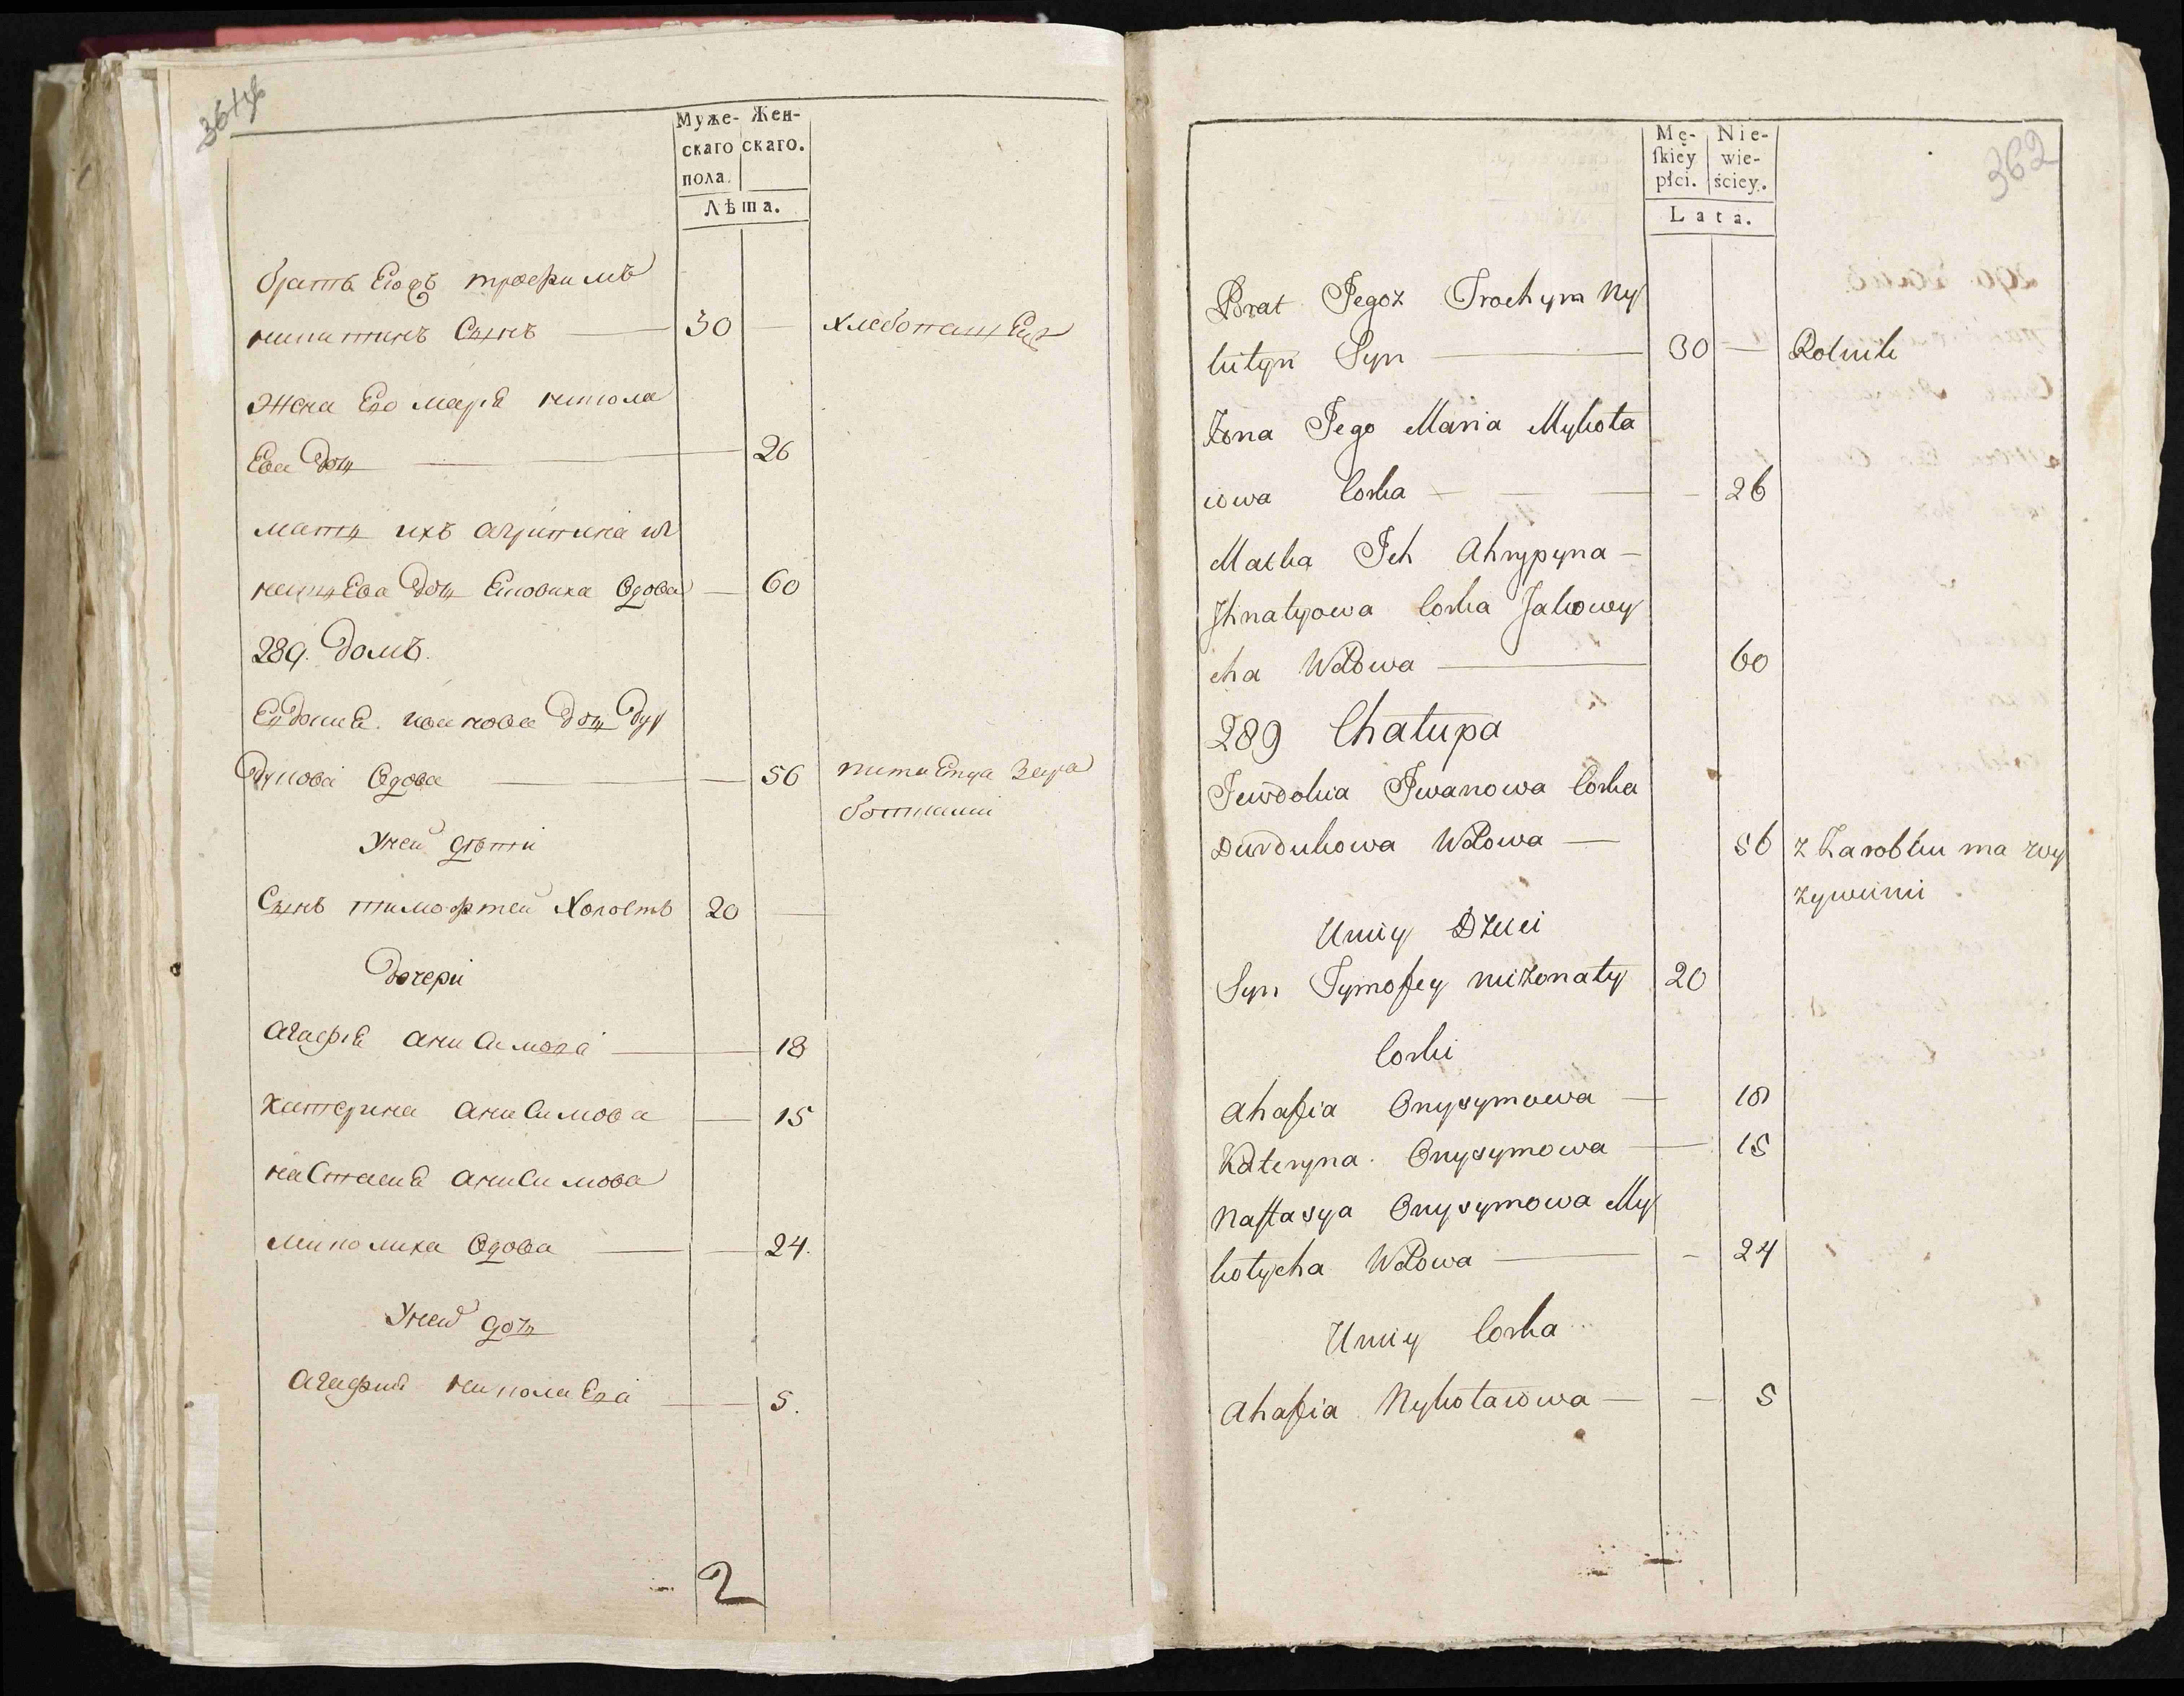 Муже- Жен-
скаго скаго.
пола.
Лѣта.
братъ Егожъ трофимъ
никитинъ Сынъ — 30 — хлебопашец
Жена Его мария никола
Ева дощ — 26
мать ихъ агрипина иг
натьева дощ вдова — 60
289. домъ.
Евдокия ивановна дощ дур
дукова вдова — 56 питается зара
ботками
Унеи дети
Сынъ тимофтей Холостъ 20 —
дочери
агафия анисимова — 18
катерина анисимова — 15
настасия анисимова
миколиха вдова — 24.
Унеи дочь
агафия николаева — 5.
2
362
Mę- Nie-
ſkiey wie-
płci. ściey.
Lata.
Brat Jegoż Trochym Ny
kityn Syn — 30 — Rolnik
Żona Jego Maria Mykoła
iowa Corka — — — 26
Matka Jch Ahrypyna —
Jhnatyowa Corka Jakowy
cha Wdowa — 60
289 Chałupa
Jewdokia Jwanowa Corka
Durdukowa Wdowa — 56 z Zarobku ma wy
żywieni
U niey Dzieci
Syn Tymofey nieżonaty 20
Corki
Ahafia Onysymowa — 18
Kateryna Onysymowa — 15
Naſtasya Onysymowa My
kołycha Wdowa — - 24
U niey Corka
Ahafia Nykołaiowa — — 5